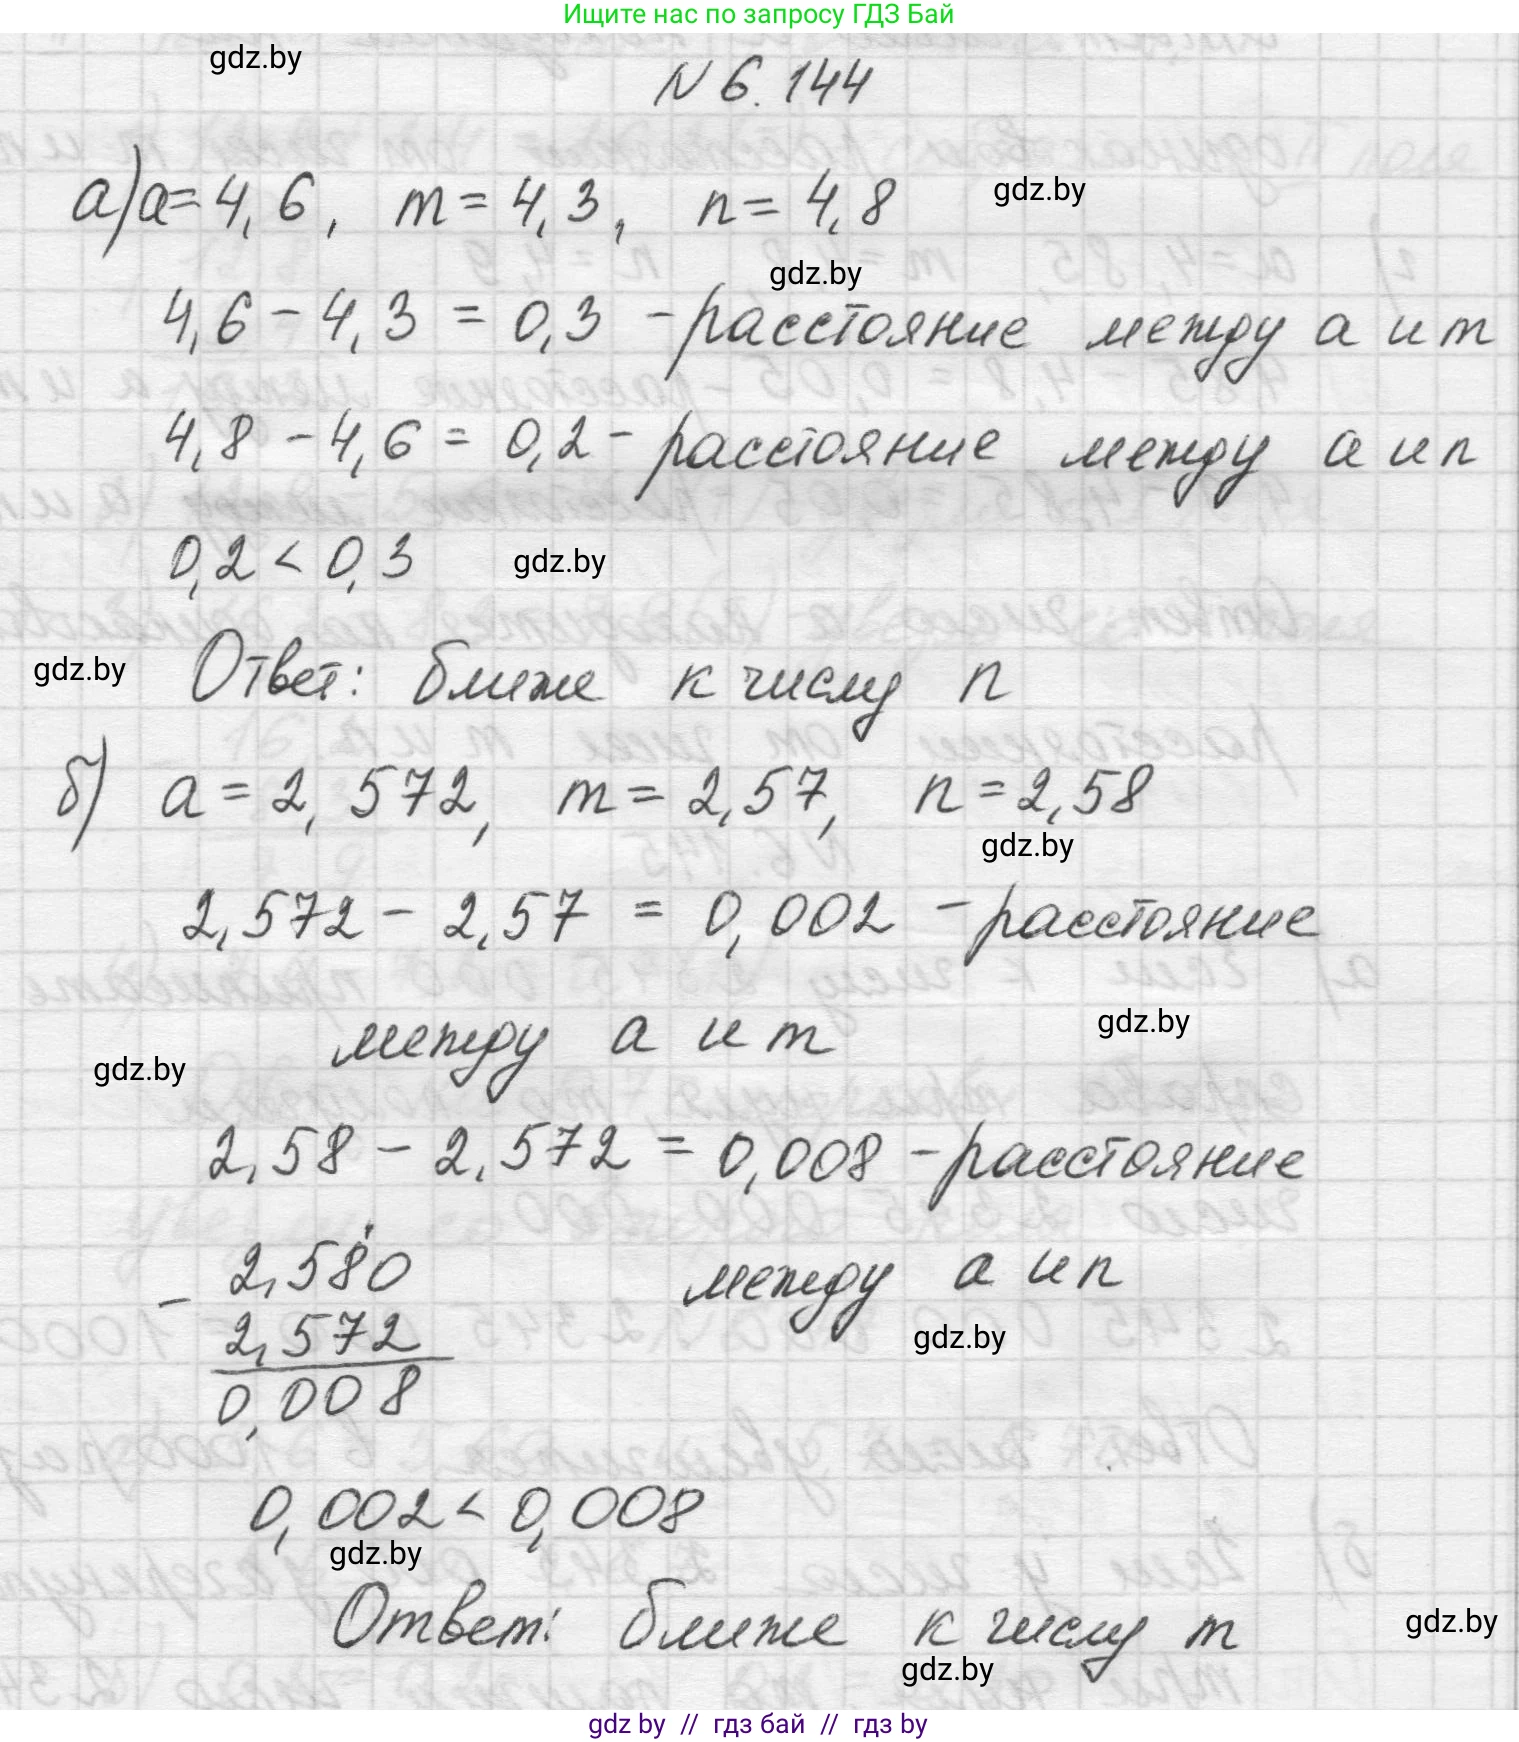 Ищите нас по запросу ГДЗ Бай
gdz.by
N 6.144
а) a=4,6, m=4,3, n=4,8
gdz.by
gdz.by
4,6-4,3=0,3 - расстояние между a и m
4,8-4,6=0,2 - расстояние между a и n
0,2<0,3
gdz.by
gdz.by
Ответ: ближе к числу n
б) a=2,572, m=2,57, n=2,58
gdz.by
2,572-2,57=0,002 - расстояние
между a и m
gdz.by
gdz.by
2,58-2,572=0,008 - расстояние
между a и n
- 2,580
2,572
0,008
gdz.by
0,002<0,008
gdz.by
Ответ: ближе к числу m
gdz.by
gdz.by
gdz by // гдз бай // гдз by